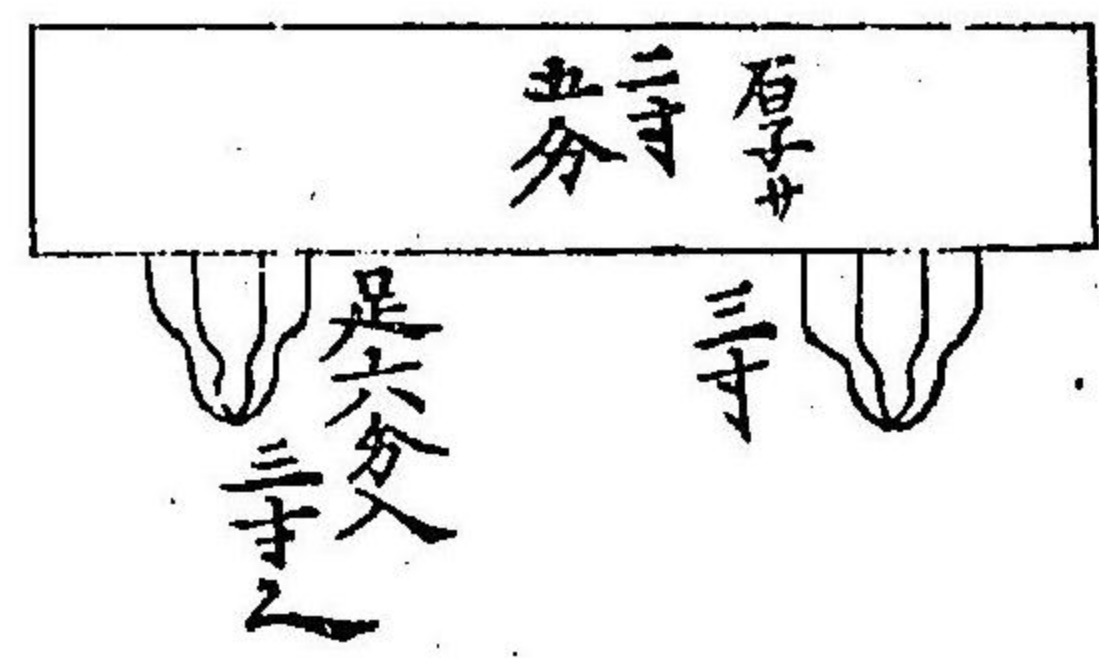 厚サ
二寸
五分
三寸
足六分入
三寸之